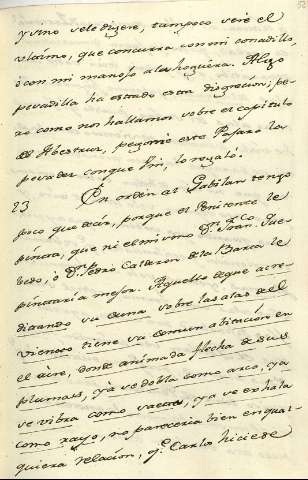 y sino velo dizere, tampoco sere el
ultimo, que concurra con mi
ò con mi manojo a la hoguera. Algo
pesadilla ha estado esta digresion; pe-
ro como nos hallamos sobre el capitulo
de pegome este Pajaro la
pesadez con que Fr. lo regalò.
23 En orden al Gabilan tengo
poco que decir, porque el Penitente le
pintta, que ni el mismo Dn. Franco. Que-
bedo, ò Dn. Pedro Calderon de la Barca le
pintaria mejor. Aquello de que acre-
ditando su cuna sobre las alas del
viento tiene su comun abitacion en
el aire, donde animada flecha de sus
plumas, yà se dobla como arco, ya
se vibra como saeta, ya se exhala
como rayo, no pareceria bien en qual-
quiera relacion, qe. Carlos hiciese